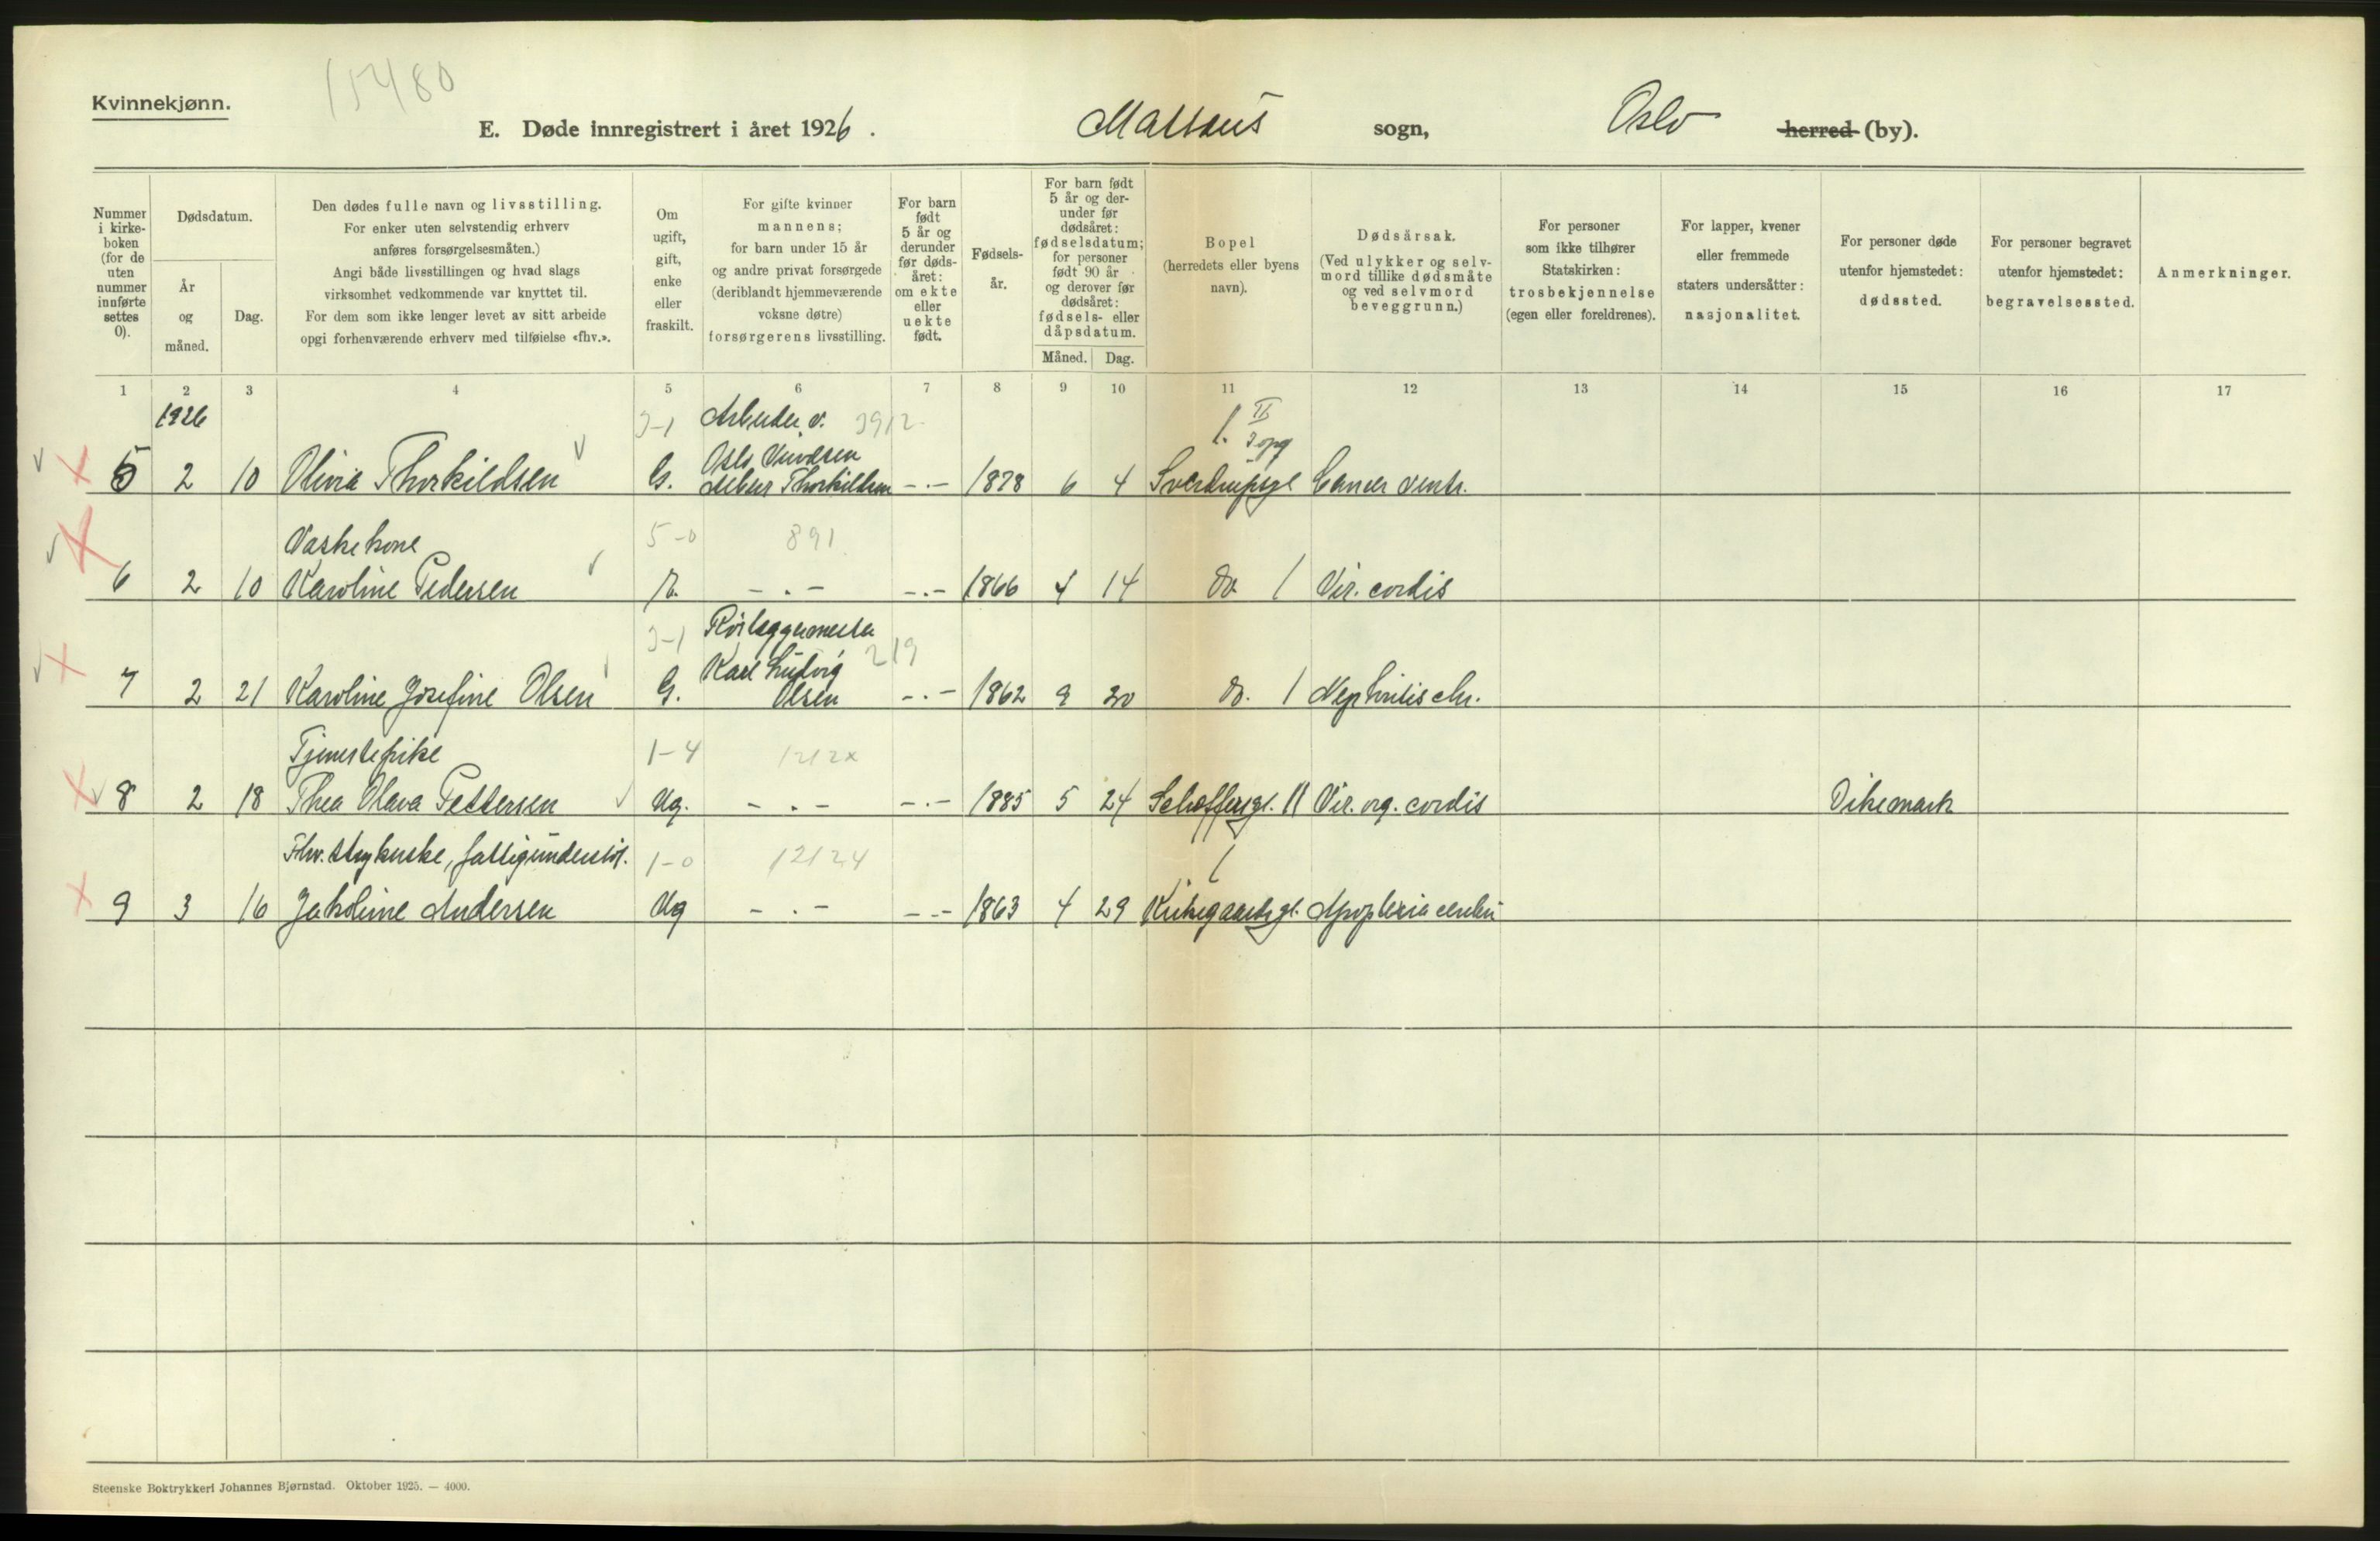 Kvinnekjønn.
15480
E. Døde innregistrert i året 1926. Mattæus sogn, Oslo herred (by).
Nummer i kirke-boken (for de uten nummer innførte settes 0).
Dødsdatum.
År og måned.
Dag.
Den dødes fulle navn og livsstilling.
For enker uten selvstendig erhverv
anføres forsørgelsesmåten.)
Angi både livsstillingen og hvad slags
virksomhet vedkommende var knyttet til.
For dem som ikke lenger levet av sitt arbeide
opgi forhenværende erhverv med tilføielse «fhv.».
Om ugift, gift, enke eller fraskilt.
For gifte kvinner
mannens;
for barn under 15 år
og andre privat forsørgede
(deriblandt hjemmeværende
voksne døtre)
forsørgerens livsstilling.
For barn født 5 år og derunder før døds-året: om ekte eller uekte født.
Fødsels-år.
For barn født 5 år og der-under før dødsåret: fødselsdatum; for personer født 90 år og derover før dødsåret: fødsels- eller dåpsdatum.
Måned. Dag.
Bopel
(herredets eller byens
navn).
Dødsårsak.
(Ved ulykker og selv-
mord tillike dødsmåte
og ved selvmord
beveggrunn.)
For personer
som ikke tilhører
Statskirken:
trosbekjennelse
(egen eller foreldrenes).
For lapper, kvener
eller fremmede
staters undersåtter:
nasjonalitet.
For personer døde
utenfor hjemstedet:
dødssted.
For personer begravet
utenfor hjemstedet:
begravelsessted.
Anmerkninger.
1 2 3 4 5 6 7 8 9 10 11 12 13 14 15 16 17
1926 Arbeider v.
Oslo
5 2 10 Olivia Thorkildsen G. Thorkildsen -.- 1878 6 4 Sverdrupsgt Cancer ventr.
Vaskekone 5-0 891
6 2 10 Karoline Pedersen -.- -.- 1866 4 14 do / Vir. cordis
Rørlæggermester
Karl Ludvig 219
7 2 21 Karoline Josefine Olsen G. Olsen -.- 1862 9 30 do. / Nephritis chr.
Tjenestepike 1-4 1212x
8 2 18 Thea Olava Pettersen Ug. -.- -.- 1885 5 24 Schøffersgt. 11 Vir. org. cordis Dikemark
Fhv. strykerske, fattigunderst. 1-0 12124
9 3 16 Jakobine Andersen Ug -.- -.- 1863 4 29 Kirkegaardsgt. Apoplexia cerebri
Steenske Boktrykkeri Johannes Bjørnstad. Oktober 1925. — 4000.